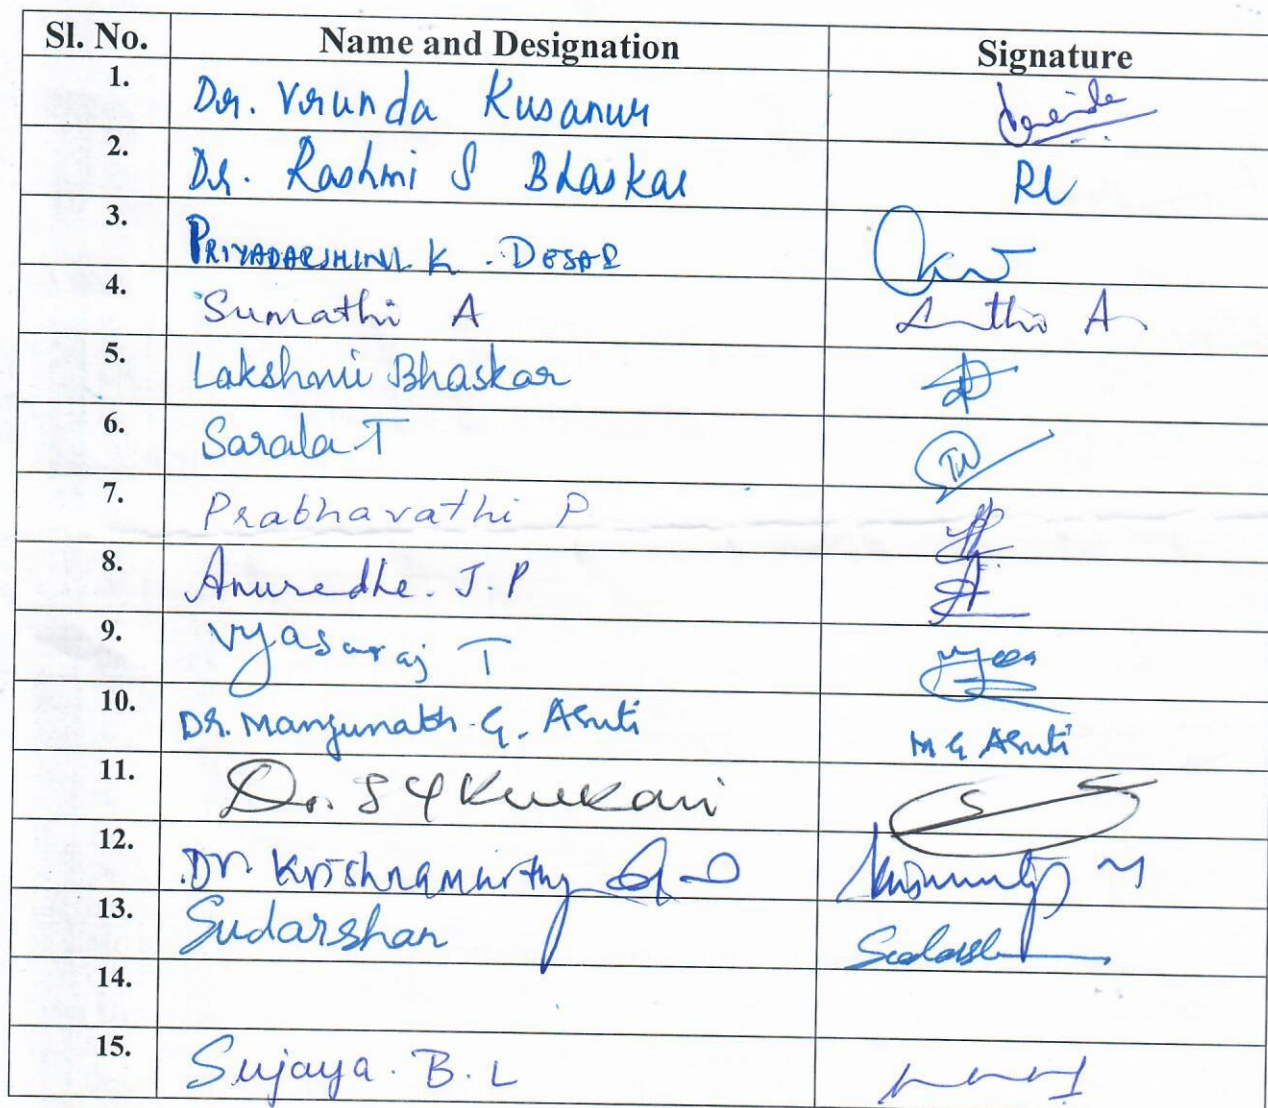 Sl. No. Name and Designation Signature
1. Dr. Vrunda Kusanur
2. Dr. Rashmi S Bhaskar RL
3. PRIYADARSHINI K. DESAI
4. Sumathi A A
5. Lakshmi Bhaskar
6. Sarala T
7. Prabhavathi P
8. Anuradha. J. P
9. Vyasaraj T
10. Dr. Manjunath. G. Asuti M G Asuti
11. Dr. S Y Kulkarni
12. Dr. Krishnamurthy
13. Sudarshan
14.
15. Sujaya. B. L